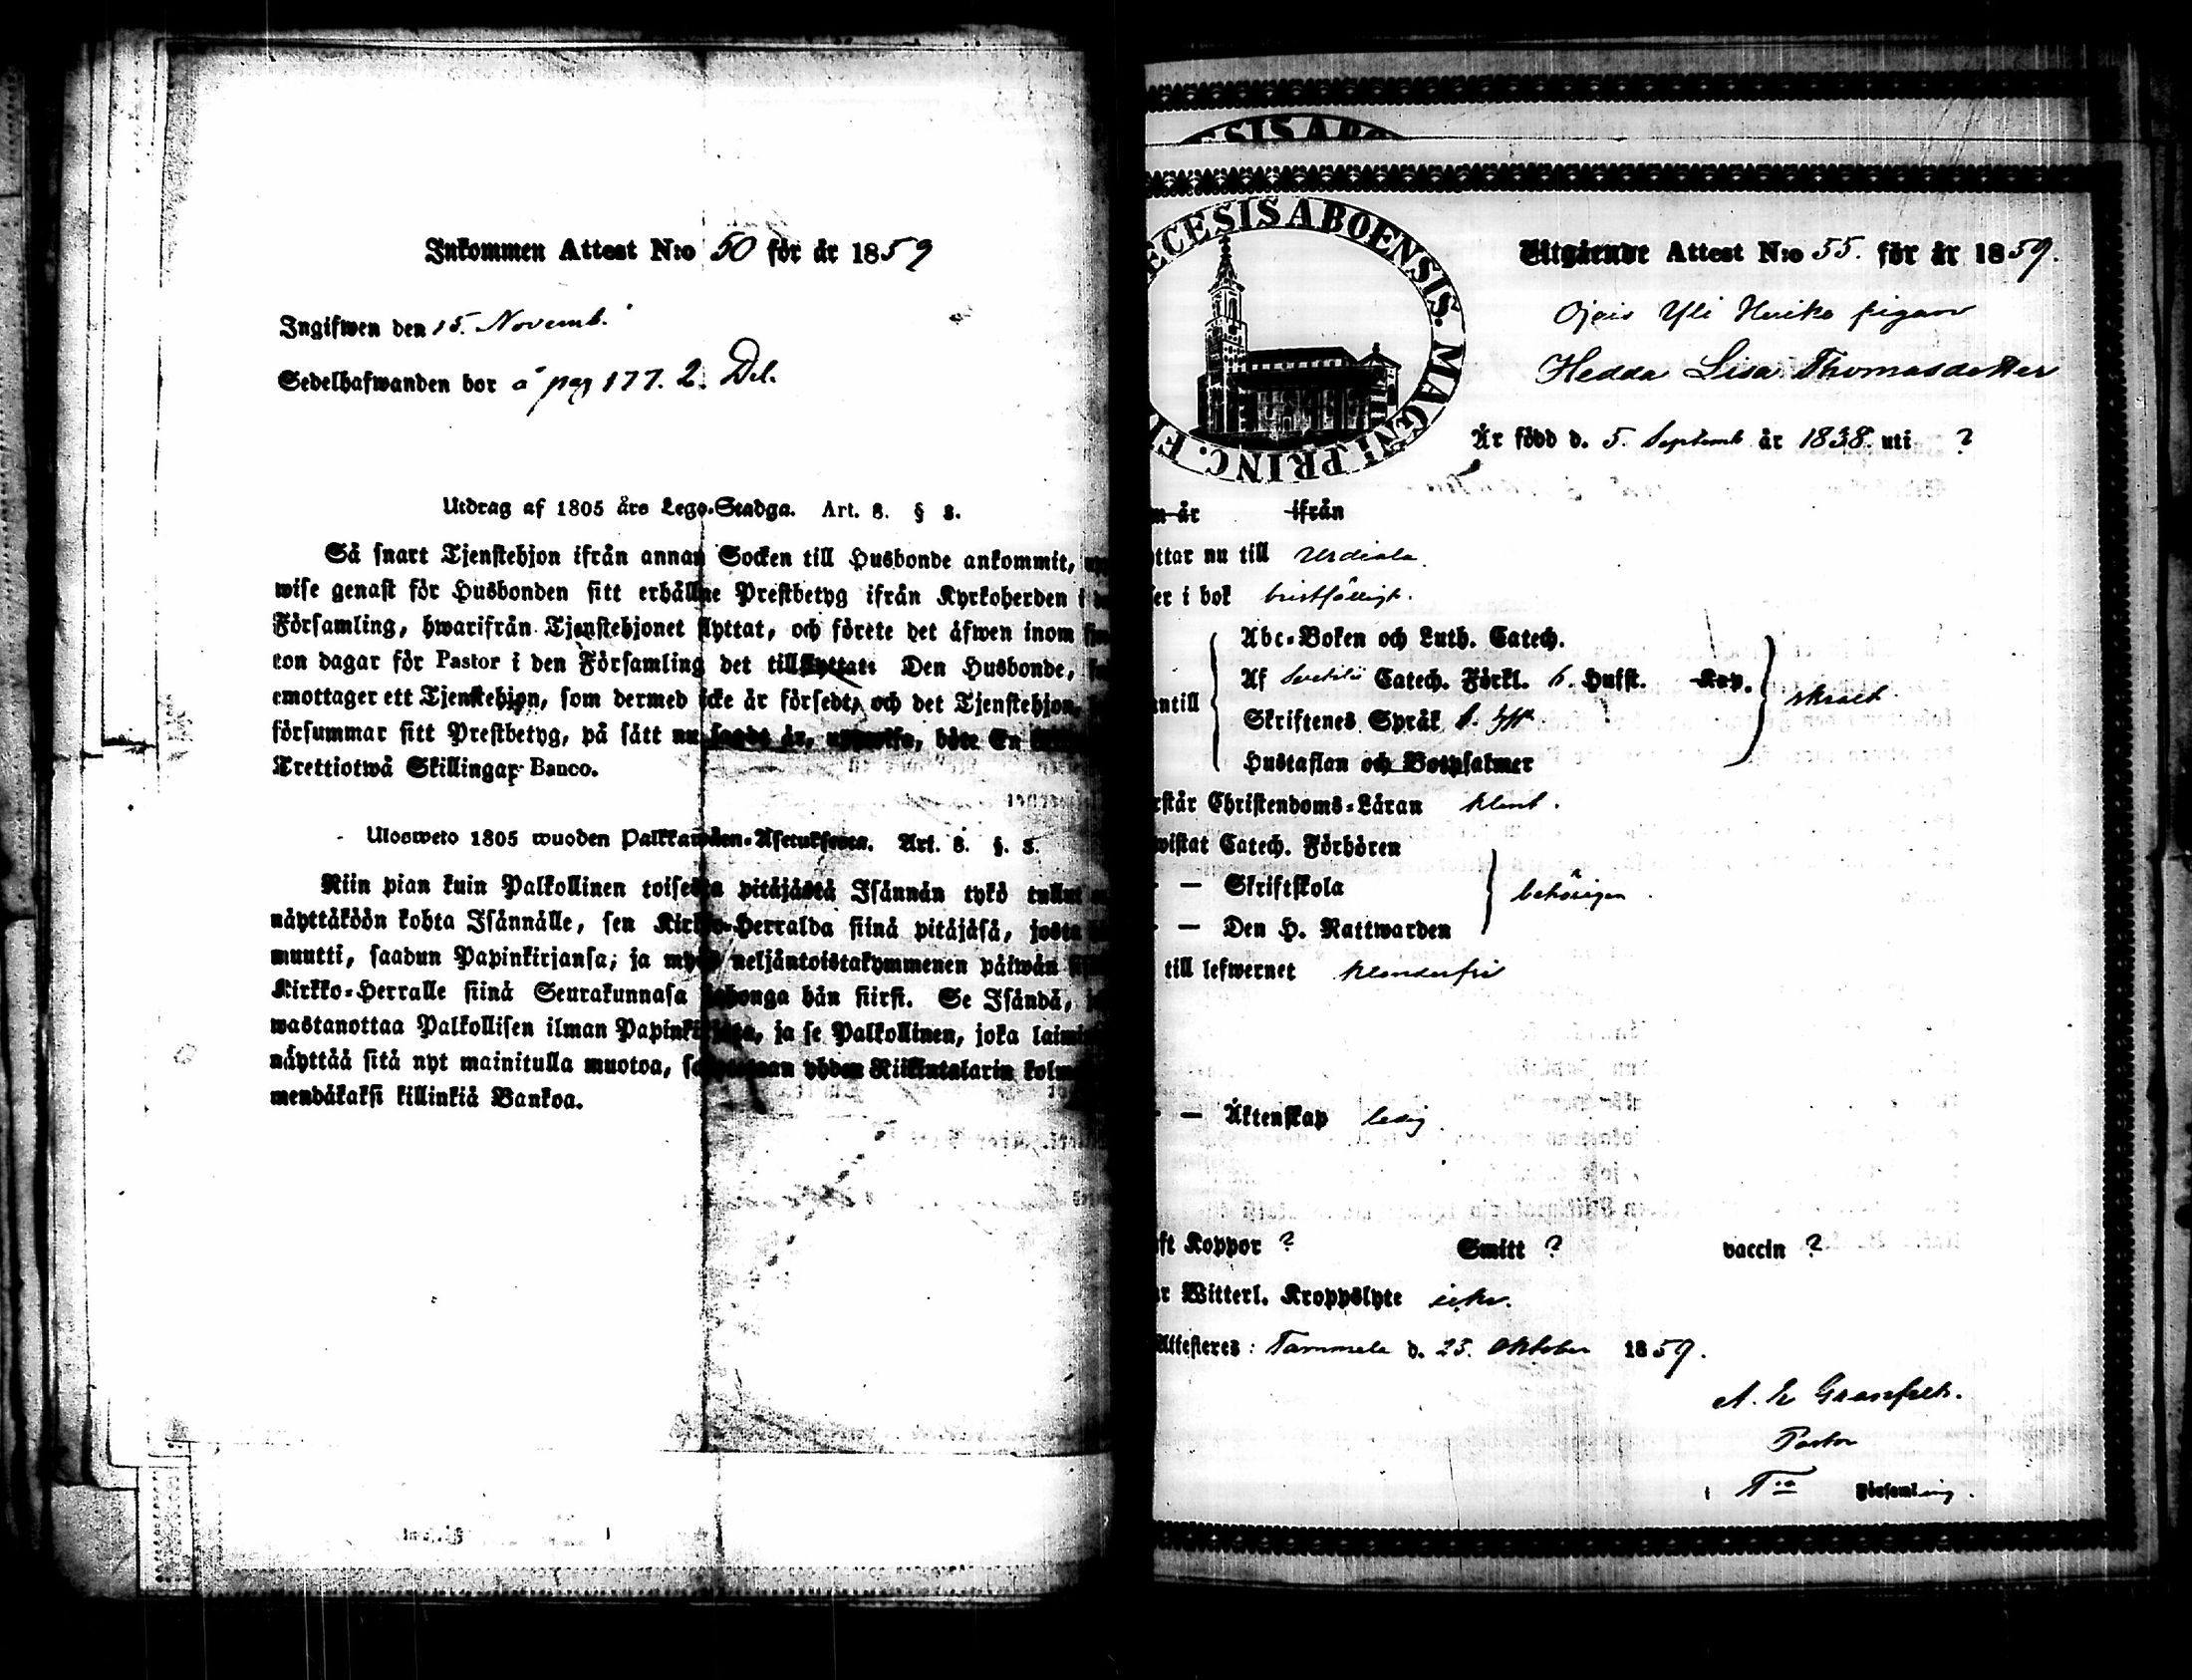 Inkommen Attest N:o 50 för år 1859
Ingifwen den 15. Novemb.
Sedelhafwanden bor å pag 177. 2. Del.
Utdrag af 1805 års Lego-Stadga. Art. 8. § 8.
Så snart Tjenstehjon ifrån annan Socken till Husbonde ankommit,
wise genast för Husbonden sitt erhållne Prestbetyg ifrån Kyrkoherden i
Församling, hwarifrån Tjenstehjonet flyttat, och förete det äfwen inom
ton dagar för Pastor i den Församling det tillflyttat: Den Husbonde,
emottager ett Tjenstehjon, som dermed icke är försedt, och det Tjenstehjon,
försummar sitt Prestbetyg, på sätt nu sagdt är, uppwisa, böte En
Trettiotwå Skillingar Banco.
Ulosweto 1805 wuoden Palkkawäen-Asetuksesta. Art. 8. §. 8.
Niin pian kuin Palkollinen toisesta pitäjästä Isännän tykö tullut
näyttäköön kohta Isännälle, sen Kirkko-Herralda siinä pitäjäsä, josta
muutti, saadun Papinkirjansa; ja myös neljäntoistakymmenen päiwän
Kirkko-Herralle siinä Seurakunnasa johonga hän siirsi. Se Isändä,
wastanottaa Palkollisen ilman Papinkirjata, ja se Palkollinen, joka
näyttää sitä nyt mainitulla muotoa, yhden Riikintalarin
mendäkaksi killinkiä Bankoa.
ECESIS ABOENSIS. MAGNI PRINC.
Utgående Attest N:o 55. för år 1859.
Yli pigan
Hedda Lisa Thomasdotter
Är född d. 5. Septemb år 1838. uti ?
år ifrån
ttar nu till Urdiala.
er i bok bristfälligt.
Abc-Boken och Luth. Catech.
Af Catech. Förkl. Husst. Kop.
ntill Skriftenes Språk
Hustaflan och Botpsalmer
rstår Christendoms-Läran klent.
wistat Catech. Förhören
— Skriftskola behörigen.
— Den H. Nattwarden
till lefwernet klanderfri
— Äktenskap ledig.
ft Koppor ? Smitt ? vaccin ?
r Witterl. Kroppslyte icke.
Attesteres: Tammela d. 25. Oktober 1859.
A. E Granfelt.
Pastor
i Församling.